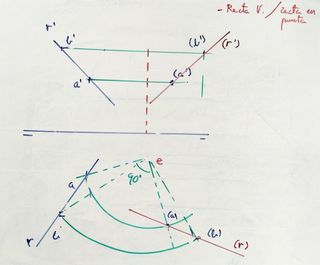 - Recta V. / recta en punta
r' b' (b') (r')
a' (a')
e
a 90°
(a)
b (b)
r (r)